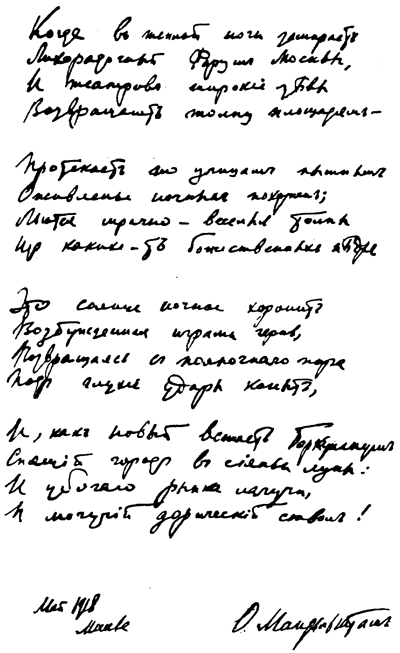 Когда въ теплой ночи замираетъ
Лихорадочный Форумъ Москвы,
И театровъ широкіе зѣвы
Возвращаютъ толпу площадямъ —
Протекаетъ по улицамъ пышнымъ
Оживленье ночныхъ похоронъ;
Льются мрачно-веселыя толпы
Из какихъ-то божественныхъ нѣдръ
Это солнце ночное хоронитъ
Возбужденная играми чернь,
Возвращаясь съ полночнаго пира
Подъ глухіе удары копытъ,
И, какъ новый встаетъ Геркуланумъ
Спящій городъ въ сіяньи луны:
И убогаго рынка лачуги,
И могучій дорическій стволъ!
Май 1918
Москва
О. Мандельштамъ